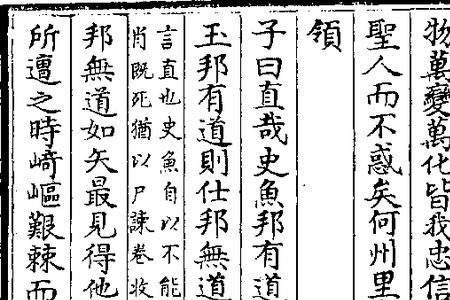 物萬變萬化皆我忠信
聖人而不惑矣何州里
領
子曰直哉史魚邦有道
玉邦有道則仕邦無道
言直也史魚自以不能
肖既死猶以尸諫卷收
邦無道如矢最見得他
所遭之時崎嶇艱棘而